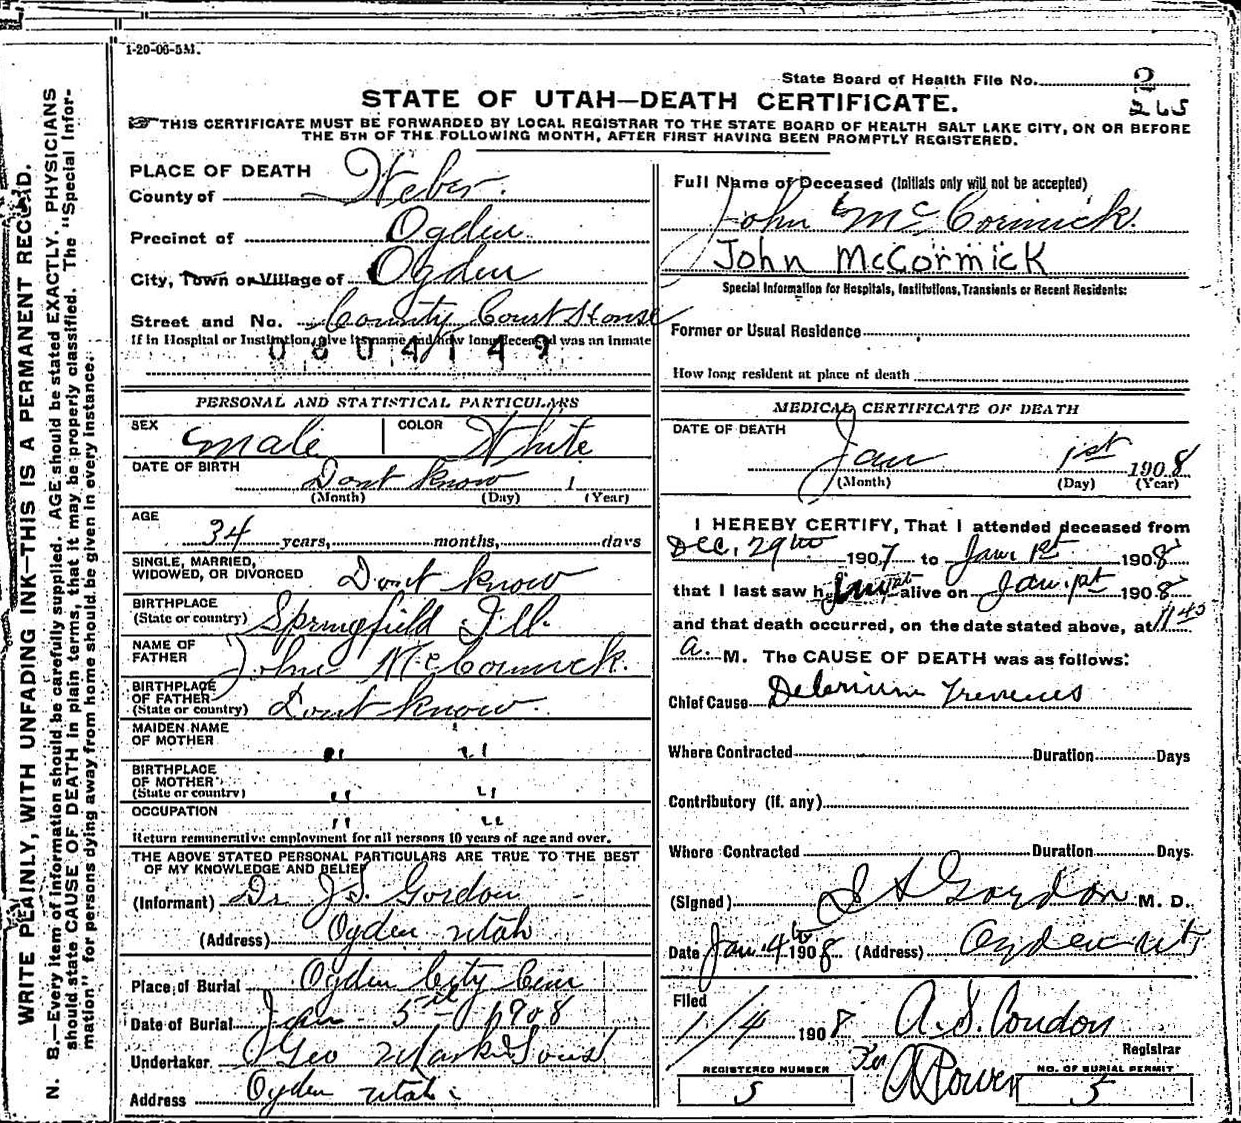 1-20-06-5M.
State Board of Health File No. 2
265
STATE OF UTAH—DEATH CERTIFICATE.
THIS CERTIFICATE MUST BE FORWARDED BY LOCAL REGISTRAR TO THE STATE BOARD OF HEALTH SALT LAKE CITY, ON OR BEFORE
THE 5TH OF THE FOLLOWING MONTH, AFTER FIRST HAVING BEEN PROMPTLY REGISTERED.
PLACE OF DEATH
County of Weber.
Precinct of Ogden
City, Town or Village of Ogden
Street and No. County Court House
If in Hospital or Institution, give its name and how long deceased was an inmate
0804149
PERSONAL AND STATISTICAL PARTICULARS
SEX male COLOR White
DATE OF BIRTH Dont know 1
(Month) (Day) (Year)
AGE
34 years, months, days
SINGLE, MARRIED,
WIDOWED, OR DIVORCED Dont know
BIRTHPLACE
(State or country) Springfield Ill.
NAME OF
FATHER John McCormick.
BIRTHPLACE
OF FATHER
(State or country) Dont know.
MAIDEN NAME
OF MOTHER " "
BIRTHPLACE
OF MOTHER
(State or country) " "
OCCUPATION " "
Return remunerative employment for all persons 10 years of age and over.
THE ABOVE STATED PERSONAL PARTICULARS ARE TRUE TO THE BEST
OF MY KNOWLEDGE AND BELIEF
(Informant) Dr J.S. Gordon
(Address) Ogden Utah
Place of Burial Ogden City Cem
Date of Burial Jan 5th 1908
Undertaker Geo Sons
Address Ogden Utah
Full Name of Deceased (Initials only will not be accepted)
John McCormick.
John McCormick
Special Information for Hospitals, Institutions, Transients or Recent Residents:
Former or Usual Residence
How long resident at place of death
MEDICAL CERTIFICATE OF DEATH
DATE OF DEATH
Jan 1st 1908
(Month) (Day) (Year)
I HEREBY CERTIFY, That I attended deceased from
Dec. 29th 1907 to Jan 1st 1908
that I last saw him alive on Jan. 1st 1908
and that death occurred, on the date stated above, at 11 45
a. M. The CAUSE OF DEATH was as follows:
Chief Cause Delerium Tremens
Where Contracted Duration Days
Contributory (if any)
Where Contracted Duration Days.
(Signed) Gordon M. D.
Date Jan. 4th 1908 (Address) Ogden Ut
Filed
1/4 1908 A.S. Condon
Registrar
REGISTERED NUMBER
5
Per
NO. OF BURIAL PERMIT
5
WRITE PLAINLY, WITH UNFADING INK—THIS IS A PERMANENT RECORD.
N. B.—Every item of information should be carefully supplied. AGE should be stated EXACTLY. PHYSICIANS
should state CAUSE OF DEATH in plain terms, that it may be properly classified. The "Special Infor-
mation" for persons dying away from home should be given in every instance.